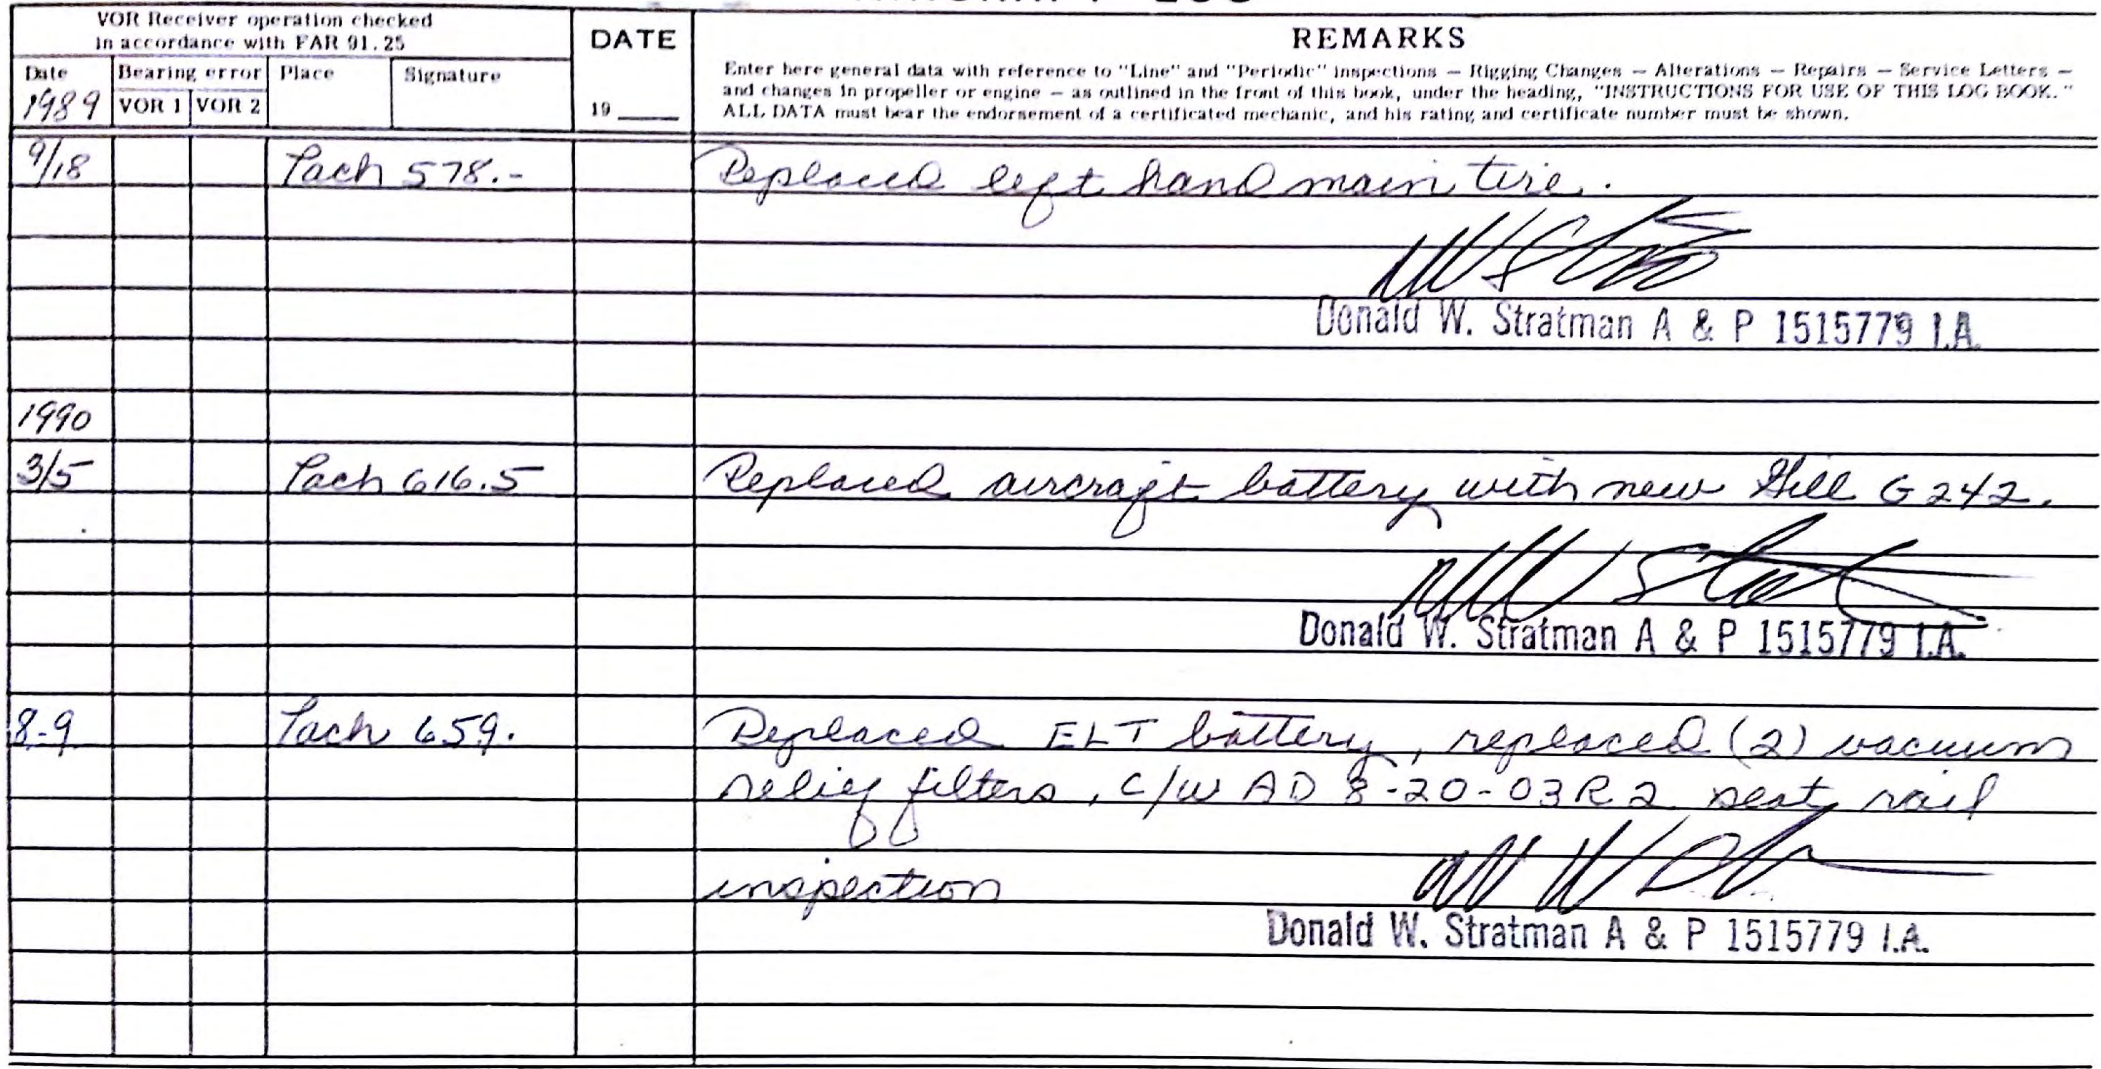 VOR Receiver operation checked
in accordance with FAR 91.25
DATE
REMARKS
Date
Bearing error
Place
Signature
1989
VOR 1
VOR 2
19
Enter here general data with reference to "Line" and "Periodic" inspections — Rigging Changes — Alterations — Repairs — Service Letters —
and changes in propeller or engine — as outlined in the front of this book, under the heading, "INSTRUCTIONS FOR USE OF THIS LOG BOOK."
ALL DATA must bear the endorsement of a certificated mechanic, and his rating and certificate number must be shown.
9/18 Tach 578.- Replaced left hand main tire.
Donald W. Stratman A & P 1515779 I.A.
1990
3/5 Tach 616.5 Replaced aircraft battery with new Gill G242.
Donald W. Stratman A & P 1515779 I.A.
8-9 Tach 659. Replaced ELT battery, replaced (2) vacuum
relief filters, C/W AD 8-20-03R2 seat rail
inspection
Donald W. Stratman A & P 1515779 I.A.